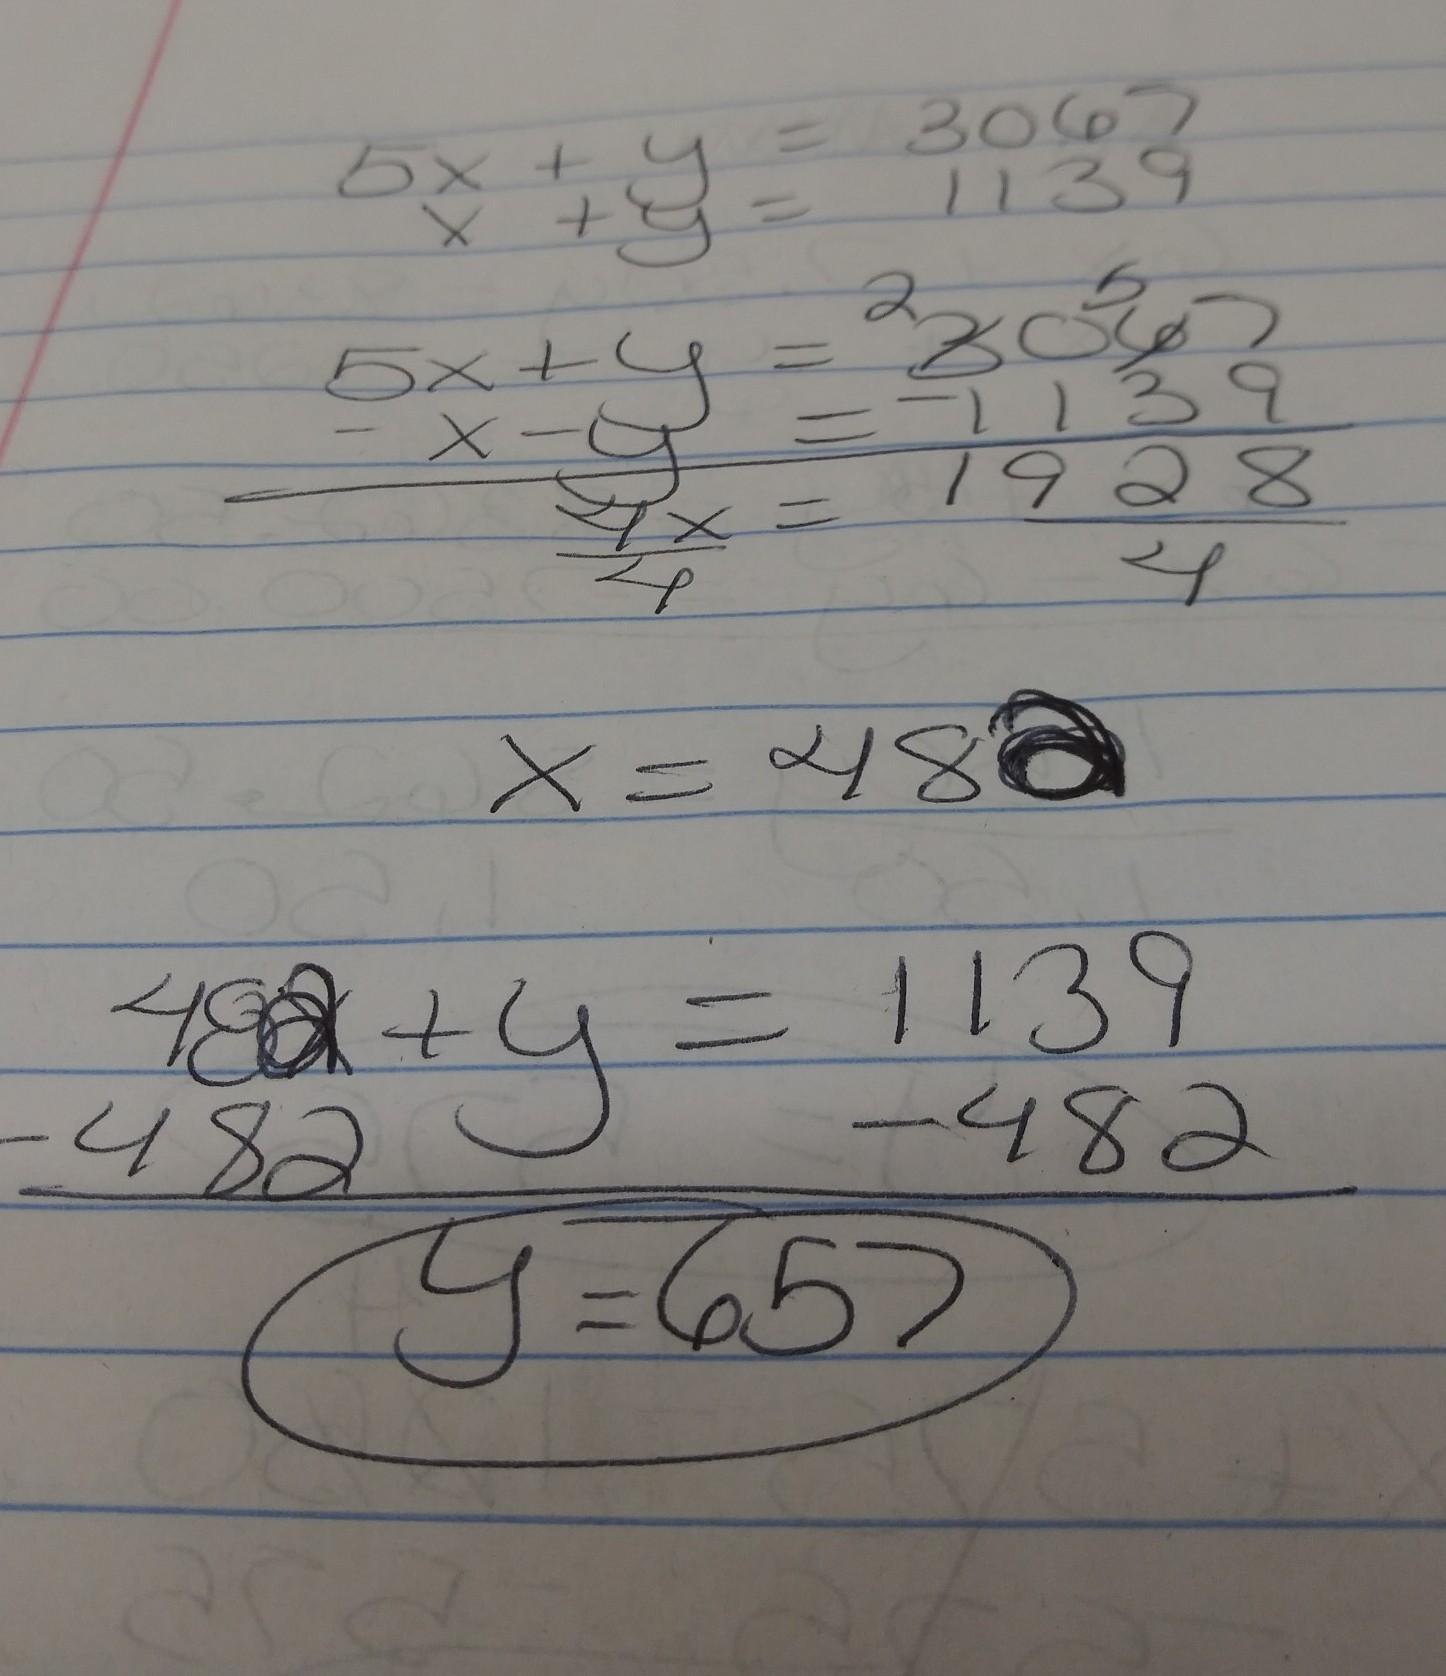 5x + y = 3067
x + y = 1139
2 5
5x + y = 3067
- x - y = -1139
4x = 1928
4 4
x = 482
482 + y = 1139
- 482 - 482
y = 657